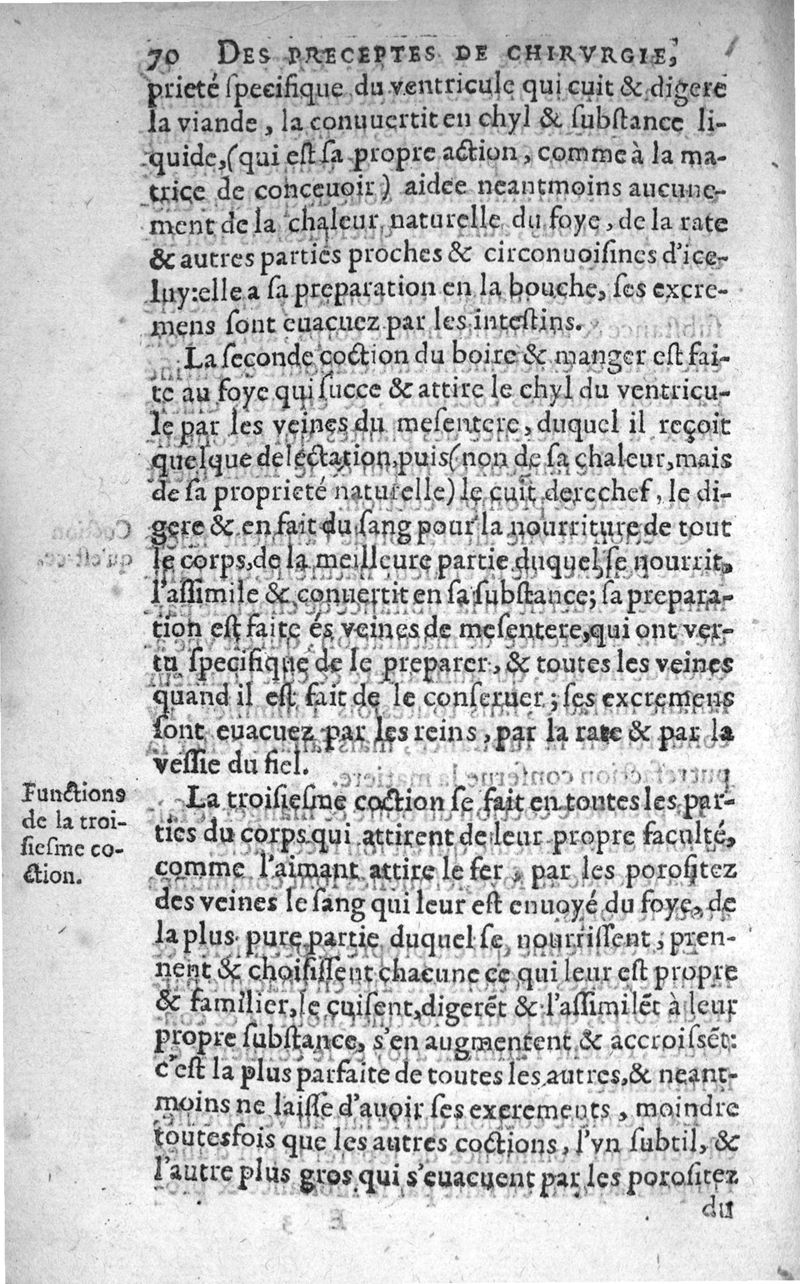 70 DES PRECEPTES DE CHIRVRGIE,
prieté ſpecifique du ventricule qui cuit & digere
la viande, la conuuertit en chyl & ſubſtance li-
quide, (qui eſt ſa propre action, comme à la ma-
trice de conceuoir) aidee neantmoins aucune-
ment de la chaleur naturelle du foye, de la rate
& autres parties proches & circonuoiſines d'ice-
luy: elle a ſa preparation en la bouche, ſes excre-
mens ſont euacuez par les inteſtins.
La ſeconde coction du boire & manger eſt fai-
te au foye qui ſucce & attire le chyl du ventricu-
le par les veines du meſentere, duquel il reçoit
quelque delectation, puis (non de ſa chaleur, mais
de ſa proprieté naturelle) le cuit derechef, le di-
gere & en fait du ſang pour la nourriture de tout
le corps, de la meilleure partie duquel ſe nourrit,
l'aſſimile & conuertit en ſa ſubſtance; ſa prepara-
tion eſt faite és veines de meſentere, qui ont ver-
tu ſpecifique de le preparer, & toutes les veines
quand il eſt fait de le conſeruer; ſes excremens
ſont euacuez par les reins, par la rate & par la
veſſie du fiel.
Functions
de la troi-
ſieſme co-
ction.
La troiſieſme coction ſe fait en toutes les par-
ties du corps qui attirent de leur propre faculté,
comme l'aimant attire le fer, par les poroſitez
des veines le ſang qui leur eſt enuoyé du foye, de
la plus pure partie duquel ſe nourriſſent, pren-
nent & choiſiſſent chacune ce qui leur eſt propre
& familier, le cuiſent, digerẽt & l'aſſimilẽt à leur
propre ſubſtance, s'en augmentent & accroiſſẽt:
c'eſt la plus parfaite de toutes les autres, & neant-
moins ne laiſſe d'auoir ſes excrements, moindre
toutesfois que les autres coctions, l'vn ſubtil, &
l'autre plus gros qui s'euacuent par les poroſitez
du